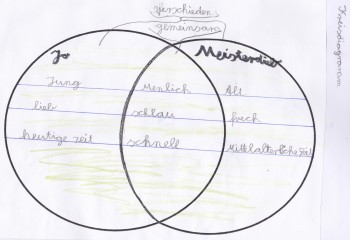 verschieden
gemeinsam
Jo Meisterdieb
Jung Menlich Alt
lieb schlau frech
heutige zeit schnell Mittelalterliche Zeit
Kreisdiagramm